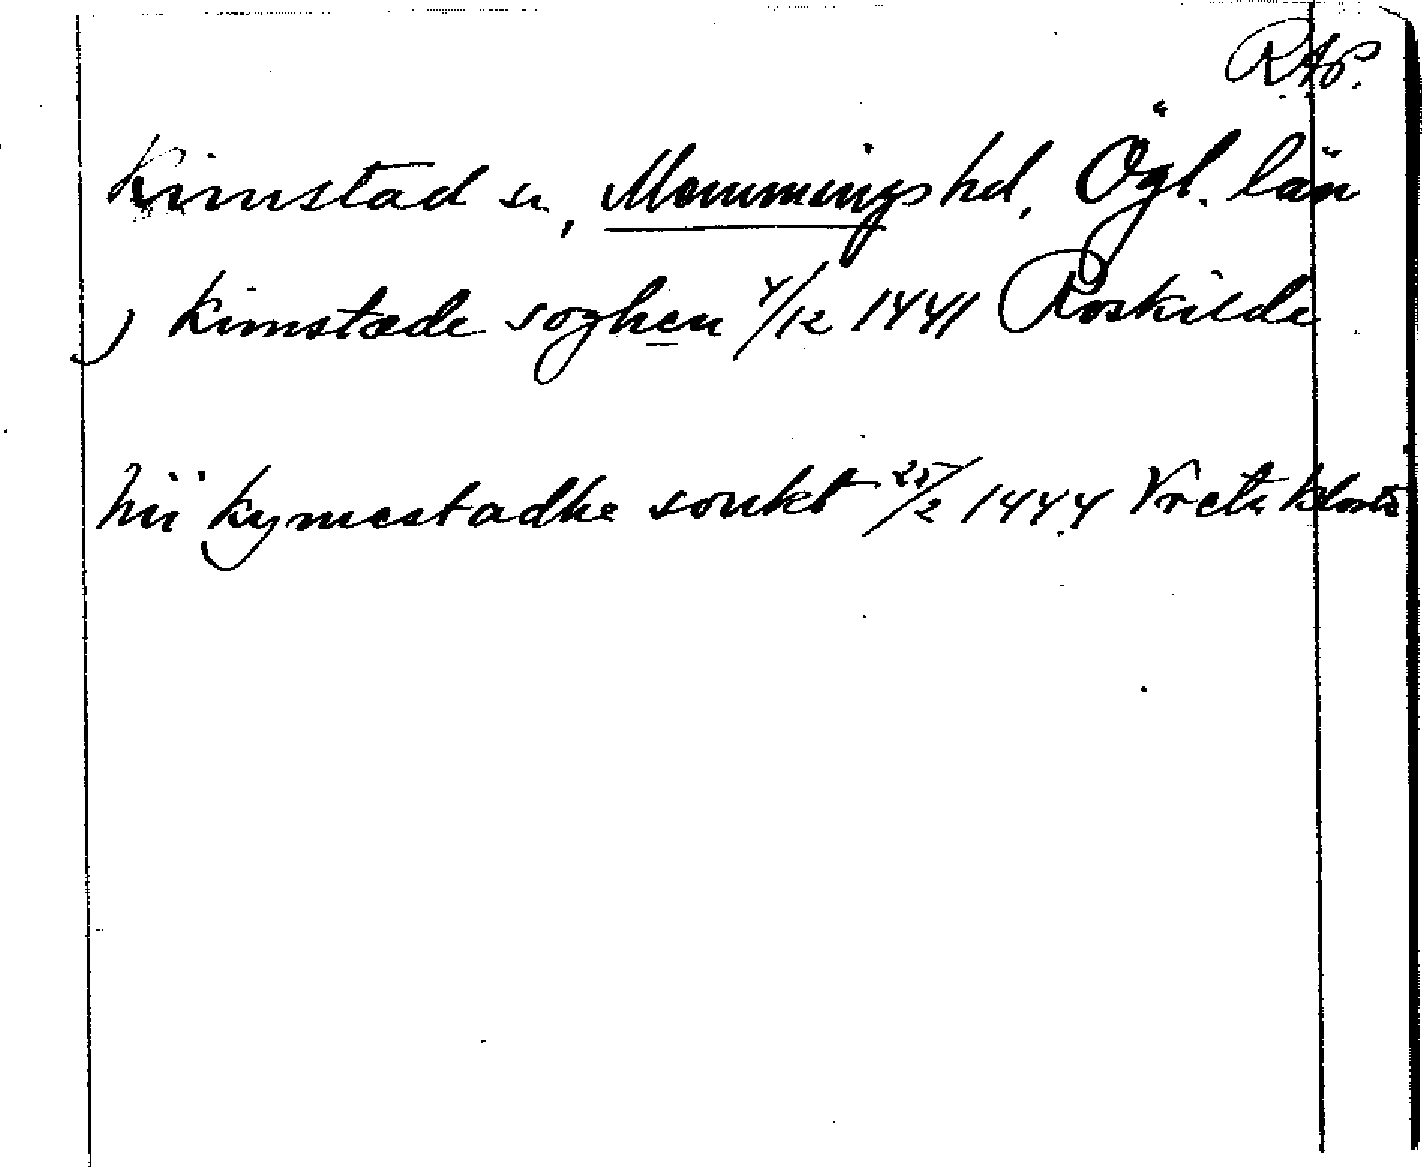 RAp.
Kimstad sn, Memmings hd, Ögl. län
j kimstæde soghen 4/12 1441 Roskilde
hii kymestadhe sonkt 25/2 1444 Vreta kloster